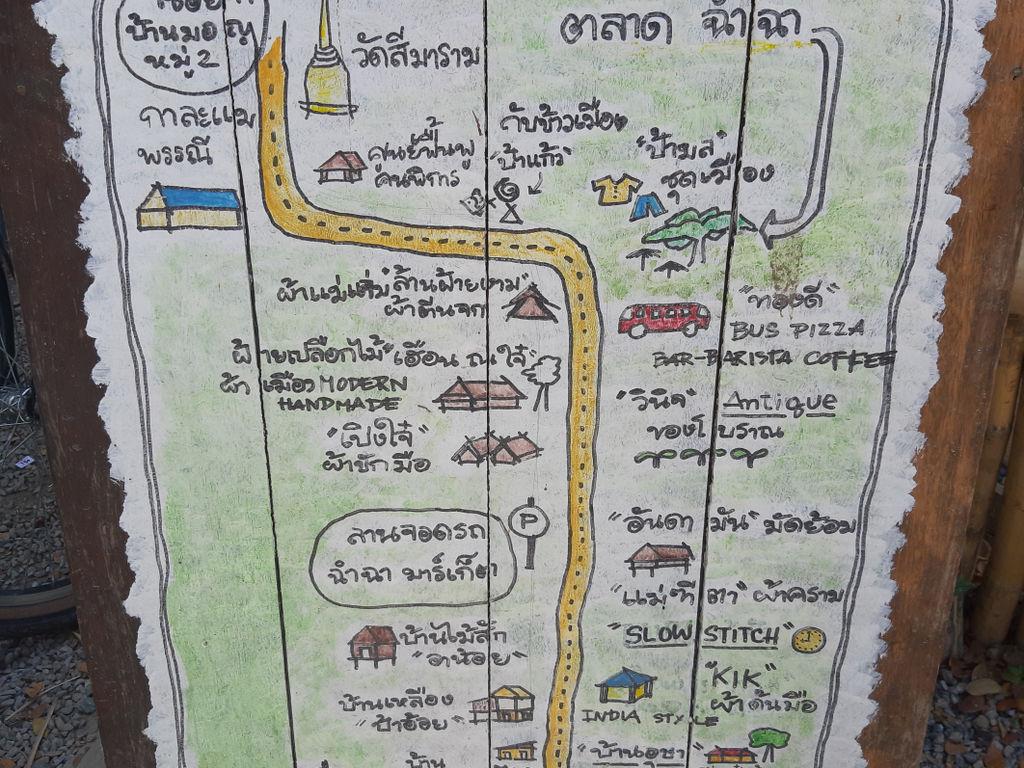 บ้านมอญ
หมู่ 2
กาละแม
พรรณี
วัดสีมาราม
ตลาด ฉำฉา
ศูนย์ฟื้นฟู
คนพิการ
กับข้าวเมือง
"ป้าแก้ว"
"ป้ามล"
ชุดเมือง
ผ้าแม่แจ่ม "ล้านฝ้ายงาม"
ผ้าตีนจก
"ทองดี"
BUS PIZZA
BAR-BARISTA COFFEE
ฝ้ายเปลือกไม้ "เฮือน ณ ใจ๋"
ผ้าเมือง MODERN
HANDMADE
"วินิจ" Antique
ของโบราณ
"เปิงใจ๋"
ผ้าชักมือ
P
ลานจอดรถ
ฉำฉา มาร์เก็ต
"อันดามัน" มัดย้อม
"แม่ทีตา" ผ้าคราม
บ้านไม้สัก
"อาน้อย"
"SLOW STITCH"
บ้านเหลือง
"ป้าอ้อย"
"KIK"
ผ้าด้นมือ
INDIA STYLE
บ้าน
"บ้านอุษา"